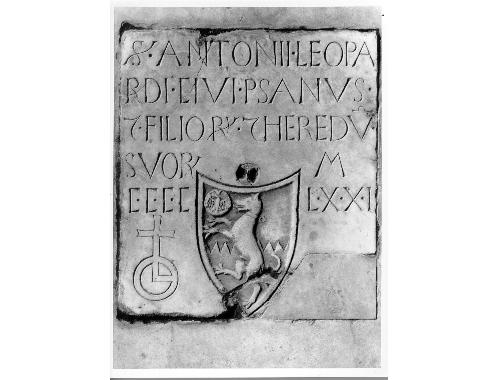 S·ANTONII·LEOPA
RDI·CIVI·PSANVS·
⁊·FILIORꝜ·⁊HEREDV̄·
SVORꝜ M
CCCC L·X·X·I